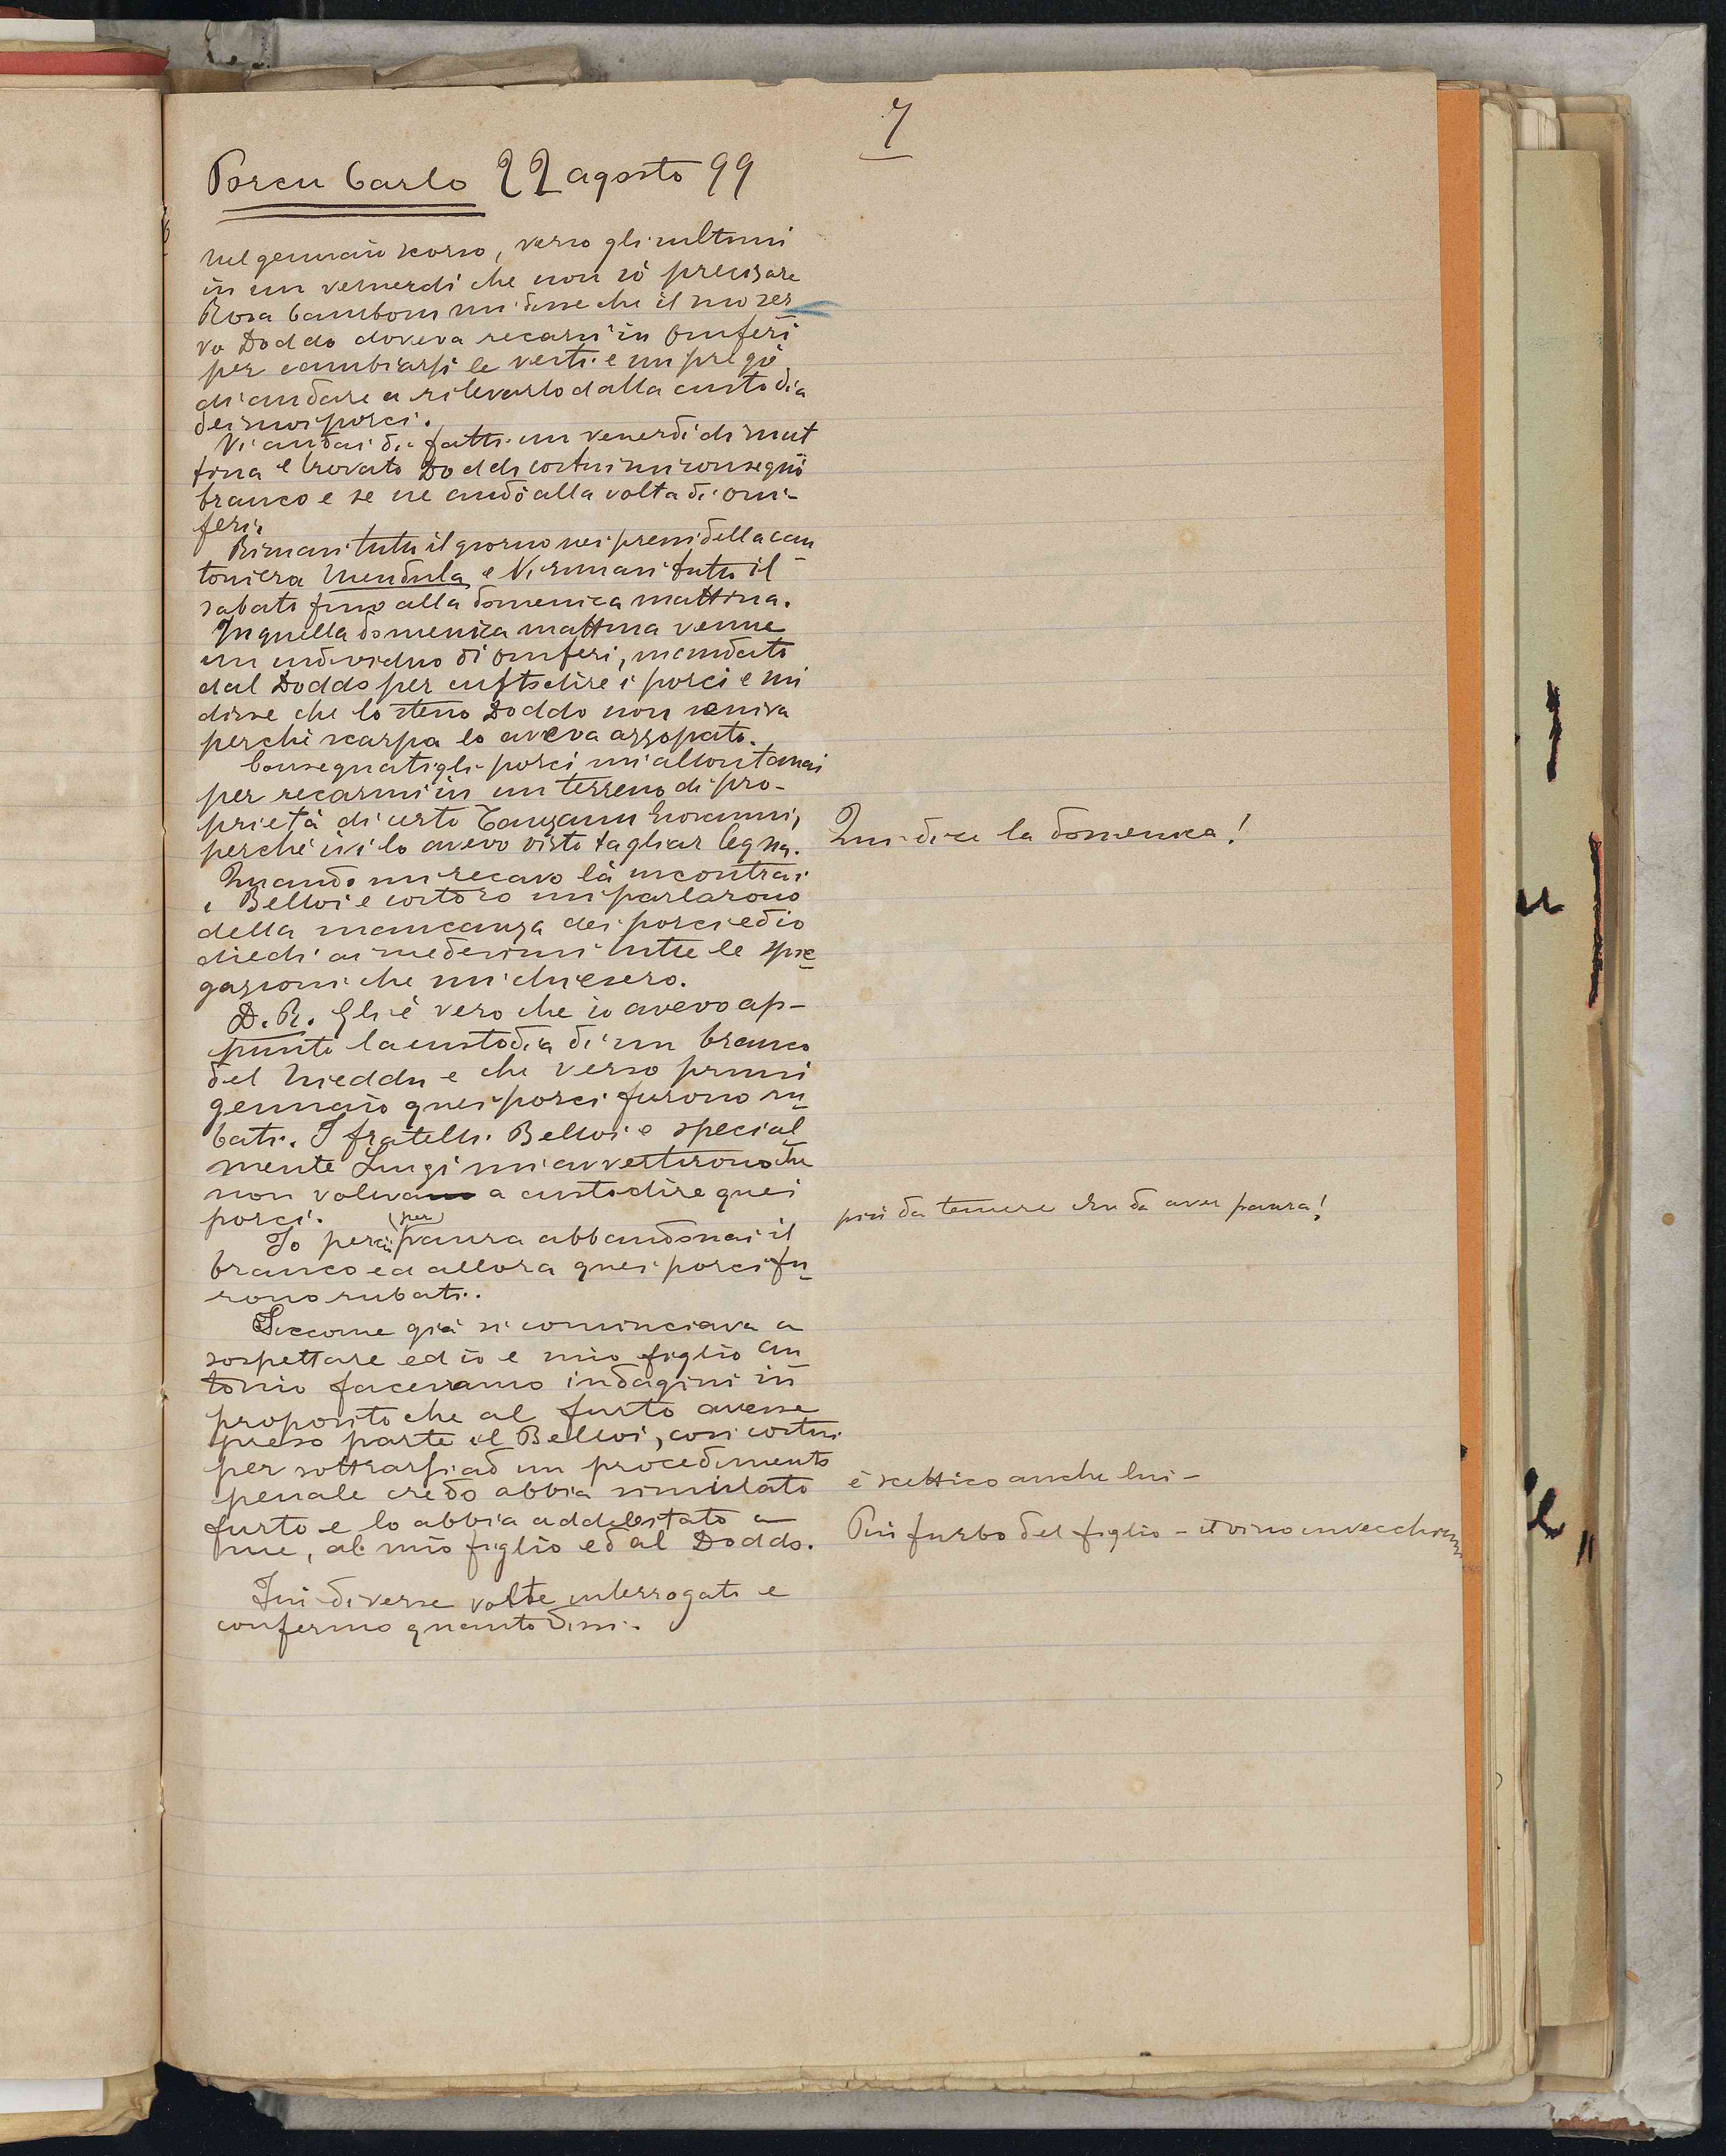 7
Porcu Carlo 22 agosto 99
nel gennaio scorso, verso gli ultimi
in un venerdì che non sò precisare
Rosa Camboni mi disse che il suo ser
vo Doddo doveva recarsi in Oniferi
per cambiarsi le vesti e mi pregò
di andare a rilevarlo dalla custodia
dei suoi porci.
Vi andai di fatti un venerdì di mat
tina e trovato Doddo costui mi consegnò
branco e se ne andò alla volta di Oni-
feri.
Rimasi tutto il giorno nei pressi della can
toniera Mendula e Vi rimasi tutto il
sabato fino alla domenica mattina.
In quella domenica mattina venne
un individuo di Oniferi, mandato
dal Doddo per custodire i porci e mi
disse che lo stesso Doddo non veniva
perchè scarpa lo aveva azzopato.
Consegnatigli porci mi allontanai
per recarmi in un terreno di pro-
prietà di certo Tanzanu Giovanni,
perchè ivi lo avevo visto tagliar legna.
Qui dice la domenica!
Quando mi recavo là incontrai
i Belloi e costoro mi parlarono
della mancanza dei porci ed io
diedi ai medesimi tutte le spie
gazioni che mi chiesero.
D. R. Gli è vero che io avevo ap-
punto la custodia di un branco
del Nieddu e che verso primi
gennaio quei porci furono ru
bati. I fratelli Belloi e special
mente Luigi mi avvertirono che
non voleva a custodire quei
porci.
più da temere che da aver paura!
Io perciò (per) paura abbandonai il
branco ed allora quei porci fu
rono rubati.
Siccome già si cominciava a
sospettare ed io e mio figlio An
tonio facevamo indagini in
proposito che al furto avesse
preso parte il Belloi, così costui
per sottrarsi ad un procedimento
penale credo abbia simulato
è scettico anche lui -
furto e lo abbia addebitato a
me, al mio figlio ed al Doddo.
Più furbo del figlio - il vino invecchian
Fui diverse volte interrogato e
confermo quanto dissi.